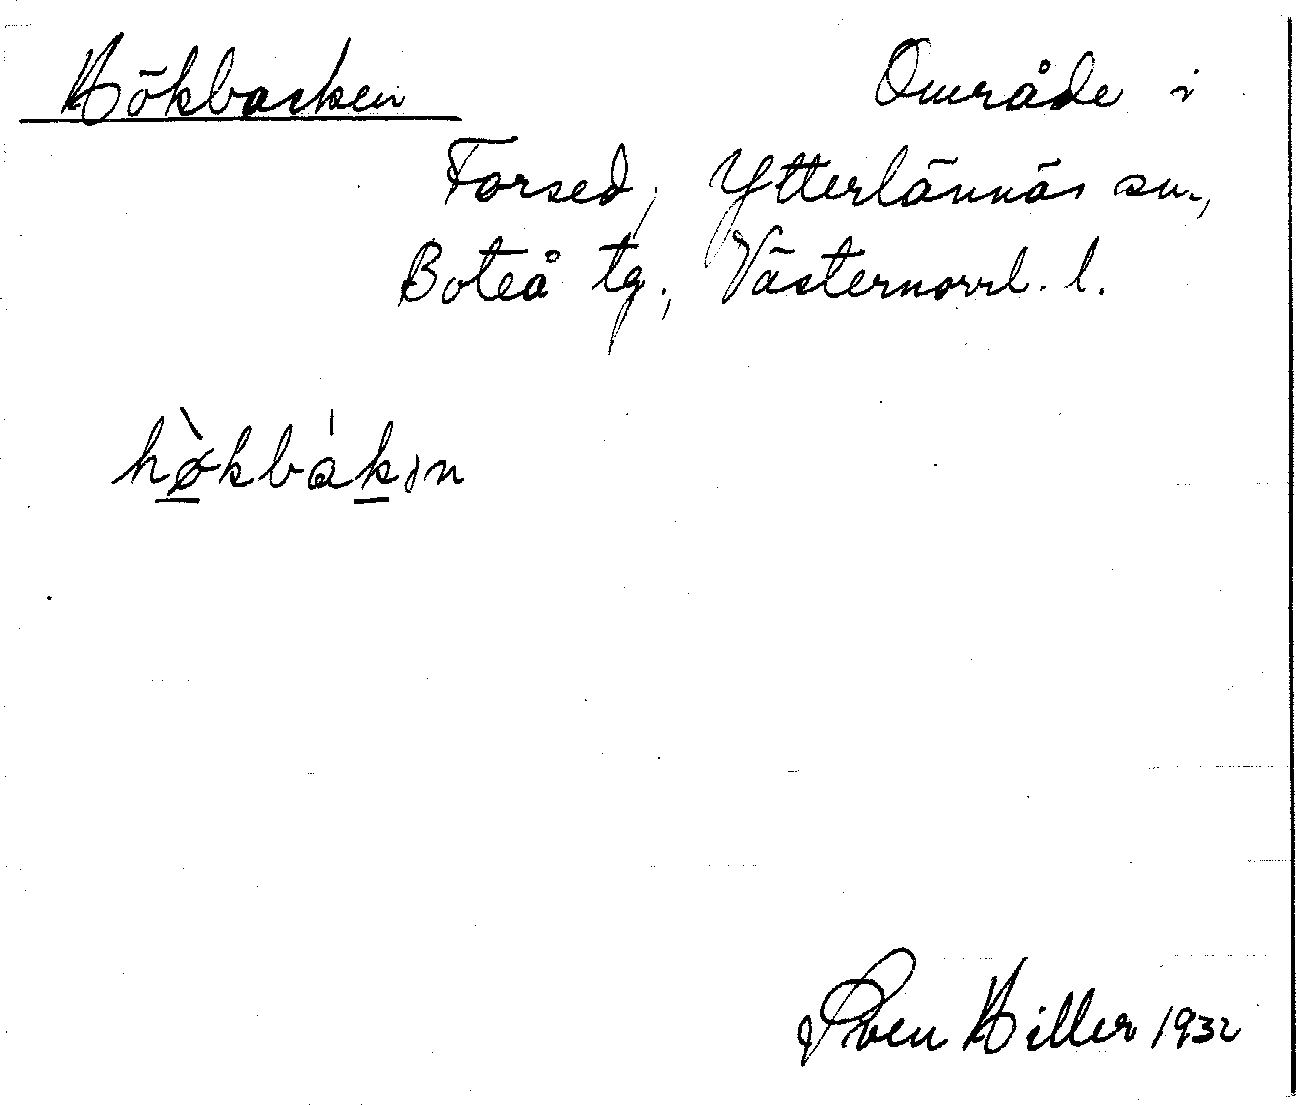 Hökbacken Område i
Forsed, Ytterlännäs sn.,
Boteå tg., Västernorrl. l.
hø̀kbákın
Sven Hiller 1932